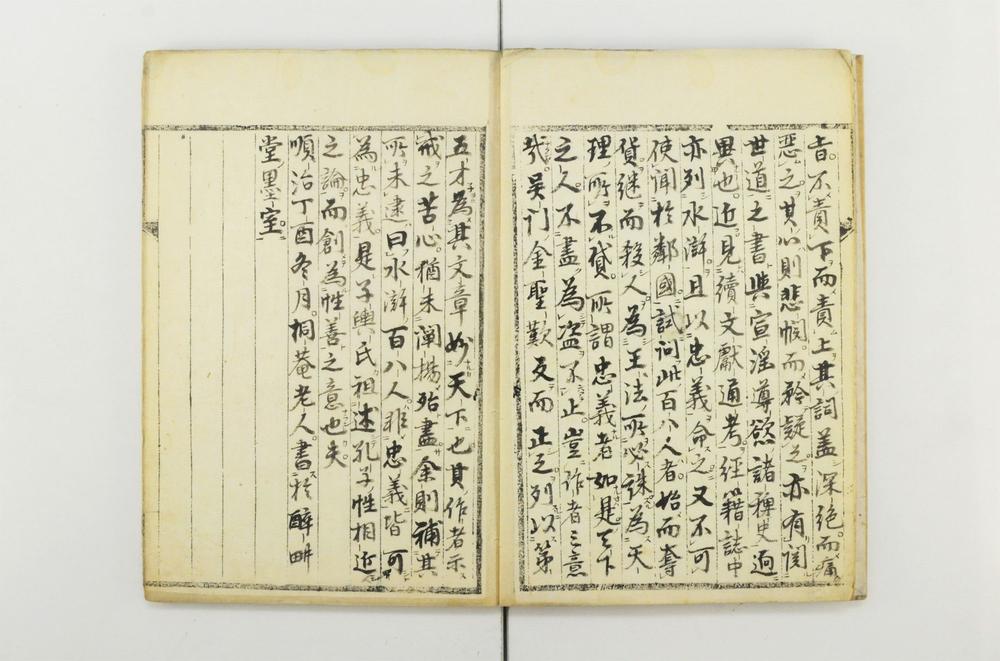 者不責下而責上其詞盖深絶而痛
惡之其心則悲憫而矜疑之亦有関
世道之書與宣淫導慾諸稗史逈
異也近見續文獻通考經籍誌中
亦列水滸且以忠義命之又不可
使聞於鄰國試问此百八人者始而奪
貨继而殺人為王法所必誅為天
理所不貸所謂忠義者如是天下
之人不盡為盗不止豈作者之意
哉吴门金聖歎反而正之列以第
五才為其文章妙天下也其作者示
戒之苦心猶未闡揚殆盡余則補其
所未逮曰水滸百八人非忠義皆可
為忠義是子輿氏祖述孔子性相近
之論而創為性善之意也夫
順治丁酉冬月桐菴老人書於醉畊
堂墨室